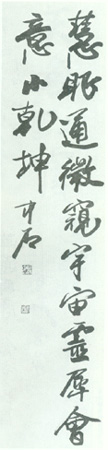 慧眼通微窥宇宙灵犀會
意小乾坤
中石